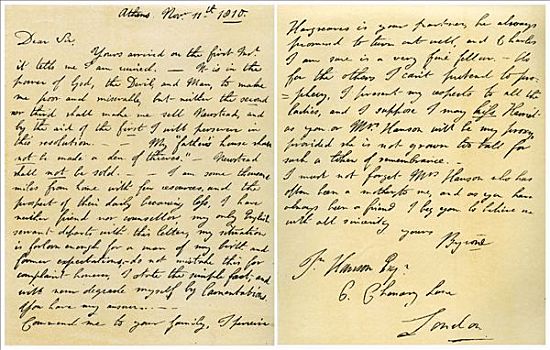 Athens Nov. 11th 1810.
Dear Sir,
Yours arrived on the first inst.
it tells me I am ruined. — It is in the
power of God, the Devil, and Man, to make
me poor and miserable, but neither the second
nor third shall make me sell Newstead, and
by the aid of the first I will persevere in
this resolution. — My "father's house shall
not be made a den of thieves". — Newstead
shall not be sold. — I am some thousand
miles from home with few resources, and the
prospect of their daily becoming less, I have
neither friend nor counsellor, my only English
servant departs with this letter, my situation
is forlorn enough for a man of my birth and
former expectations. — do not mistake this for
complaint however, I state the simple fact, and
will never degrade myself by lamentations.
You have my answer. —
Commend me to your family, I perceive
Hargreaves is your partner, he always
promised to turn out well, and Charles
I am sure is a very fine fellow. — As
for the others I can't pretend to pro-
-phecy, I present my respects to all the
ladies, and I suppose I may kiss Harriet
as you or Mrs. Hanson will be my proxy,
provided she is not grown too tall for
such a token of remembrance. —
I must not forget Mrs. Hanson who has
often been a mother to me, and as you have
always been a friend I beg you to believe me
with all sincerity
yours
Byron
Jn. Hanson Esqr.
6. Chancery Lane
London